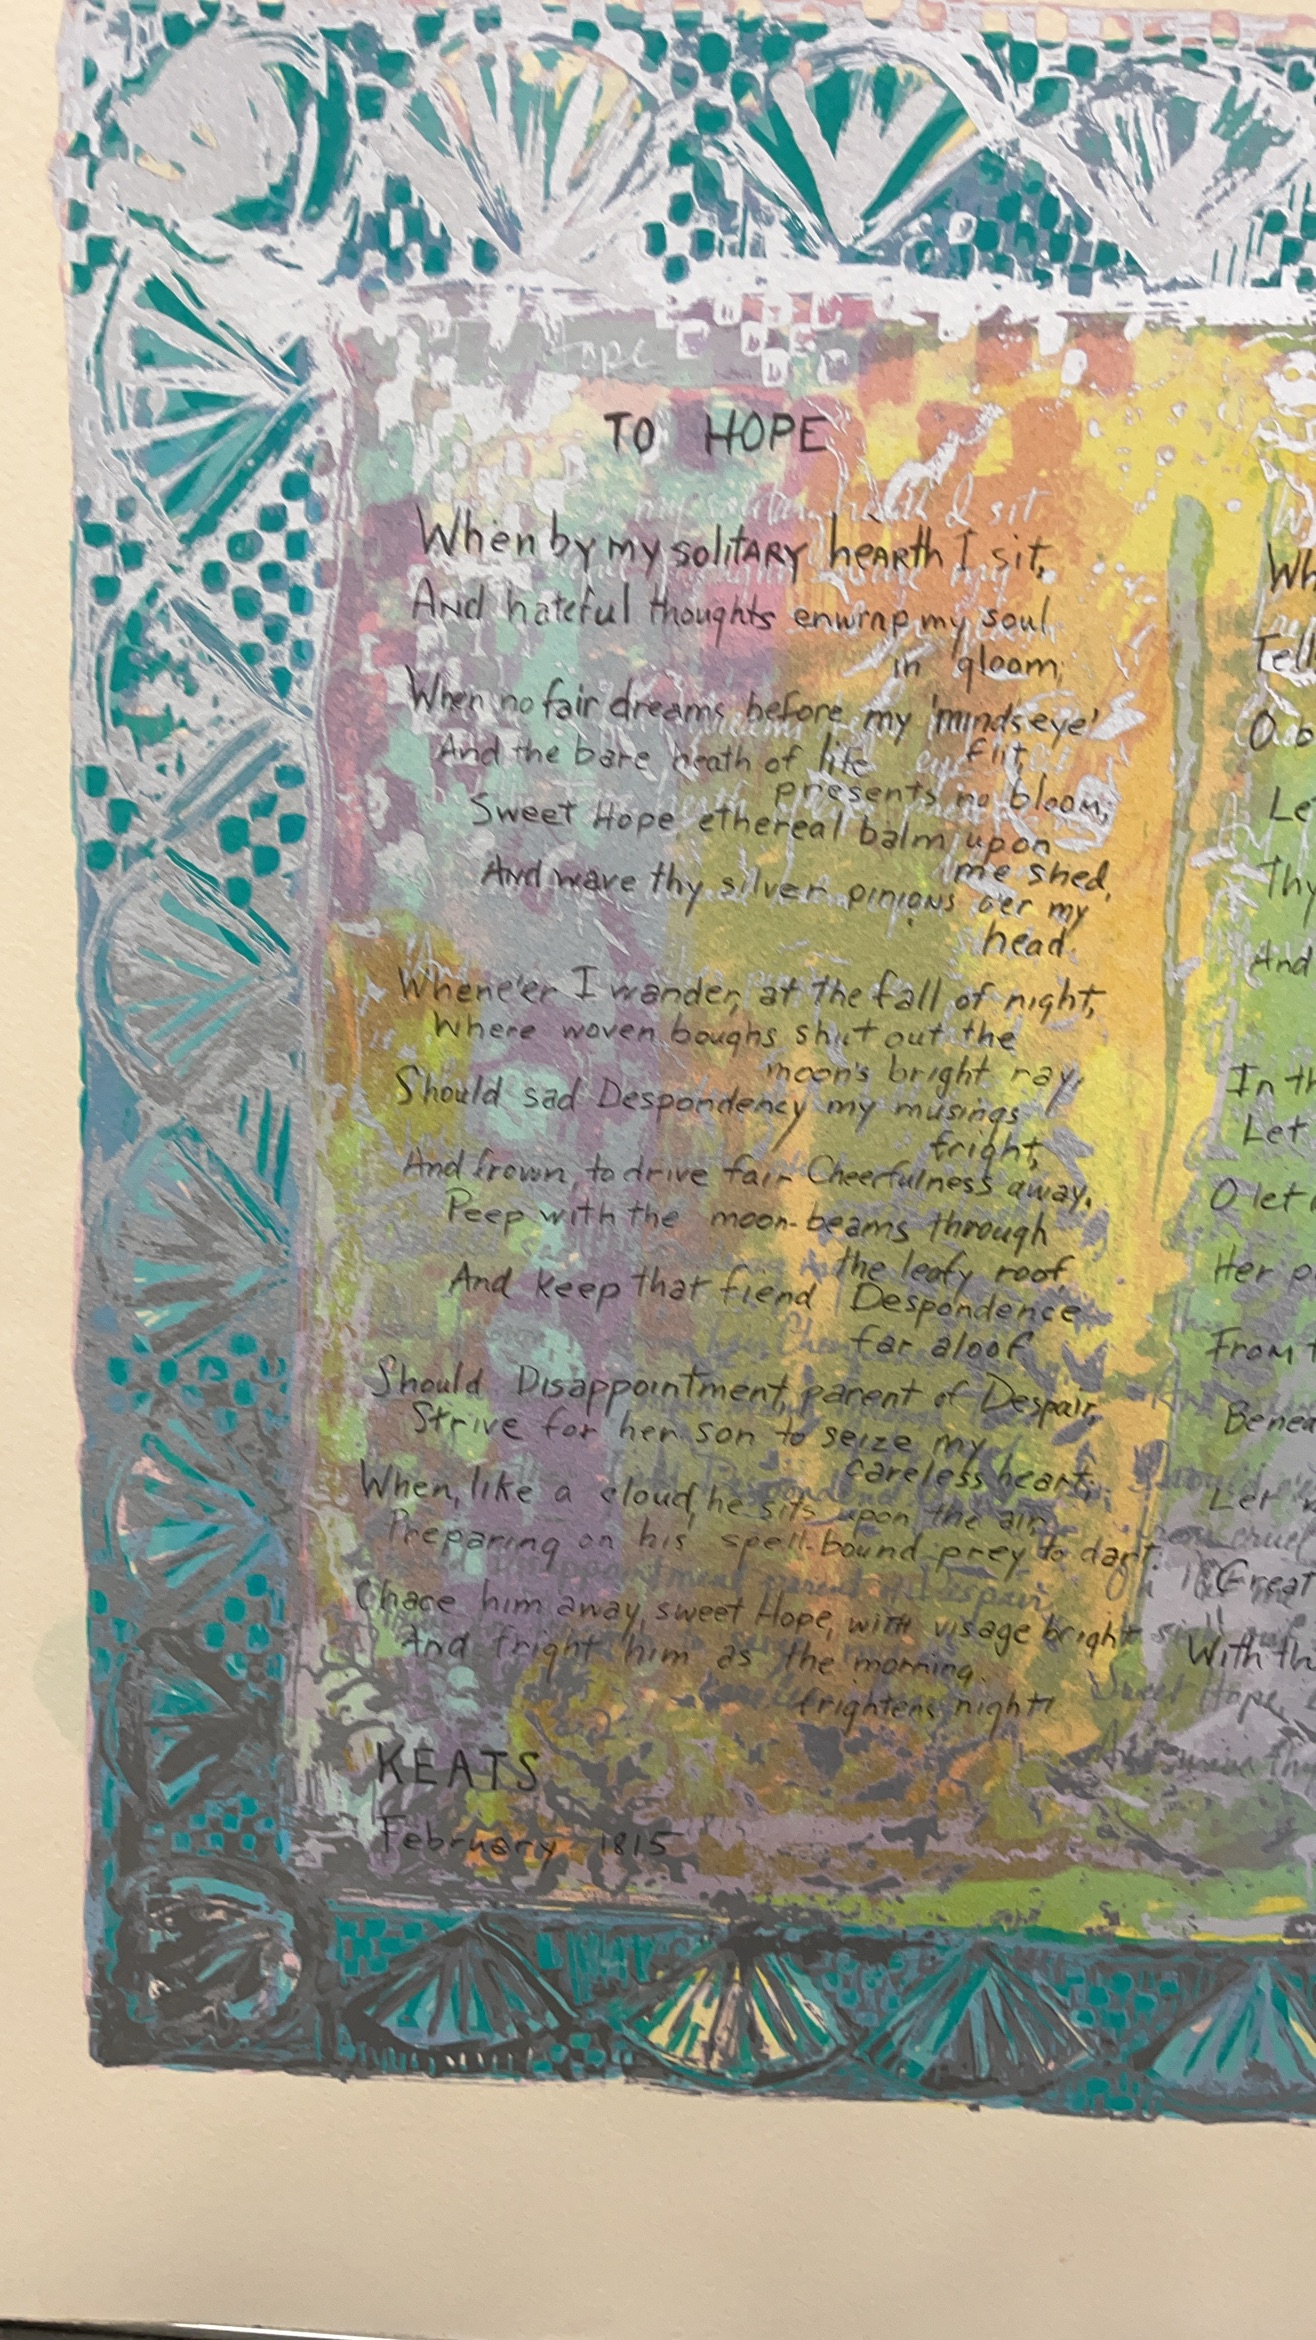 TO HOPE
When by my solitary hearth I sit,
And hateful thoughts enwrap my soul
in gloom;
When no fair dreams before my 'minds eye'
flit,
And the bare heath of life
presents no bloom;
Sweet Hope, ethereal balm upon
me shed,
And wave thy silver pinions o'er my
head.
Whene'er I wander, at the fall of night,
Where woven boughs shut out the
moon's bright ray,
Should sad Despondency my musings
fright,
And frown, to drive fair Cheerfulness away,
Peep with the moon-beams through
the leafy roof,
And keep that fiend Despondence
far aloof
Should Disappointment, parent of Despair,
Strive for her son to seize my
careless heart;
When, like a cloud, he sits upon the air,
Preparing on his spell-bound prey to dart:
Chace him away, sweet Hope, with visage bright
And fright him as the morning
frightens night!
KEATS
February 1815
Tell
O b
Le
Thy
And
In th
Let
O let
Her p
From
Benea
Let
Great
With th
Sweet Hope